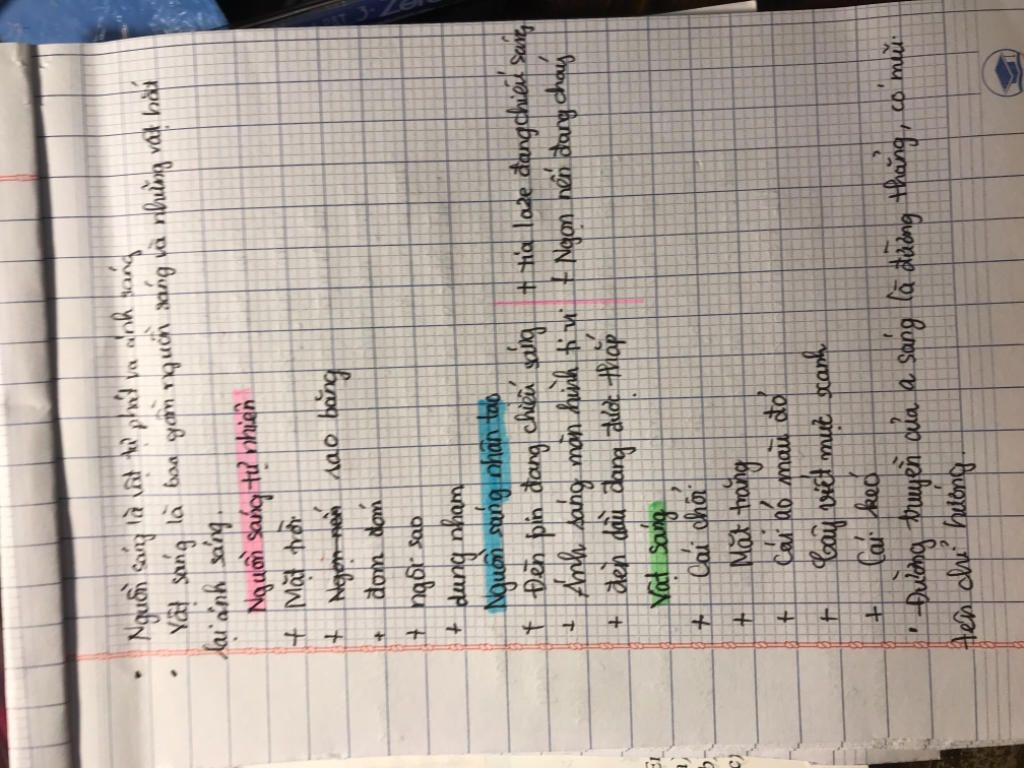 • Nguồn sáng là vật tự phát ra ánh sáng
• Vật sáng là bao gồm nguồn sáng và những vật hắt
lại ánh sáng.
Nguồn sáng tự nhiên
+ Mặt trời
+ Ngọn nến sao băng
+ đom đóm
+ ngôi sao
+ dung nham
Nguồn sáng nhân tạo
+ Đèn pin đang chiếu sáng + tia laze đang chiếu sáng
+ Ánh sáng màn hình ti vi + Ngọn nến đang cháy
+ đèn dầu đang được thắp
Vật sáng
+ Cái chổi
+ Mặt trăng
+ Cái áo màu đỏ
+ Cây viết mực xanh
+ Cái kéo
• Đường truyền của a sáng là đường thẳng, có mũi
tên chỉ hướng.